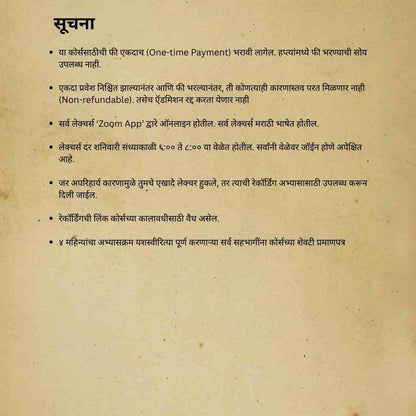 सूचना
या कोर्ससाठीची फी एकदाच (One-time Payment) भरावी लागेल. हप्त्यांमध्ये फी भरण्याची सोय
उपलब्ध नाही.
एकदा प्रवेश निश्चित झाल्यानंतर आणि फी भरल्यानंतर, ती कोणत्याही कारणास्तव परत मिळणार नाही
(Non-refundable). तसेच ऍडमिशन रद्द करता येणार नाही
सर्व लेक्चर्स 'Zoom App' द्वारे ऑनलाइन होतील. सर्व लेक्चर्स मराठी भाषेत होतील.
लेक्चर्स दर शनिवारी संध्याकाळी ६:०० ते ८:०० या वेळेत होतील. सर्वांनी वेळेवर जॉईन होणे अपेक्षित
आहे.
जर अपरिहार्य कारणामुळे तुमचे एखादे लेक्चर हुकले, तर त्याची रेकॉर्डिंग अभ्यासासाठी उपलब्ध करून
दिली जाईल.
रेकॉर्डिंगची लिंक कोर्सच्या कालावधीसाठी वैध असेल.
४ महिन्यांचा अभ्यासक्रम यशस्वीरित्या पूर्ण करणाऱ्या सर्व सहभागींना कोर्सच्या शेवटी प्रमाणपत्र